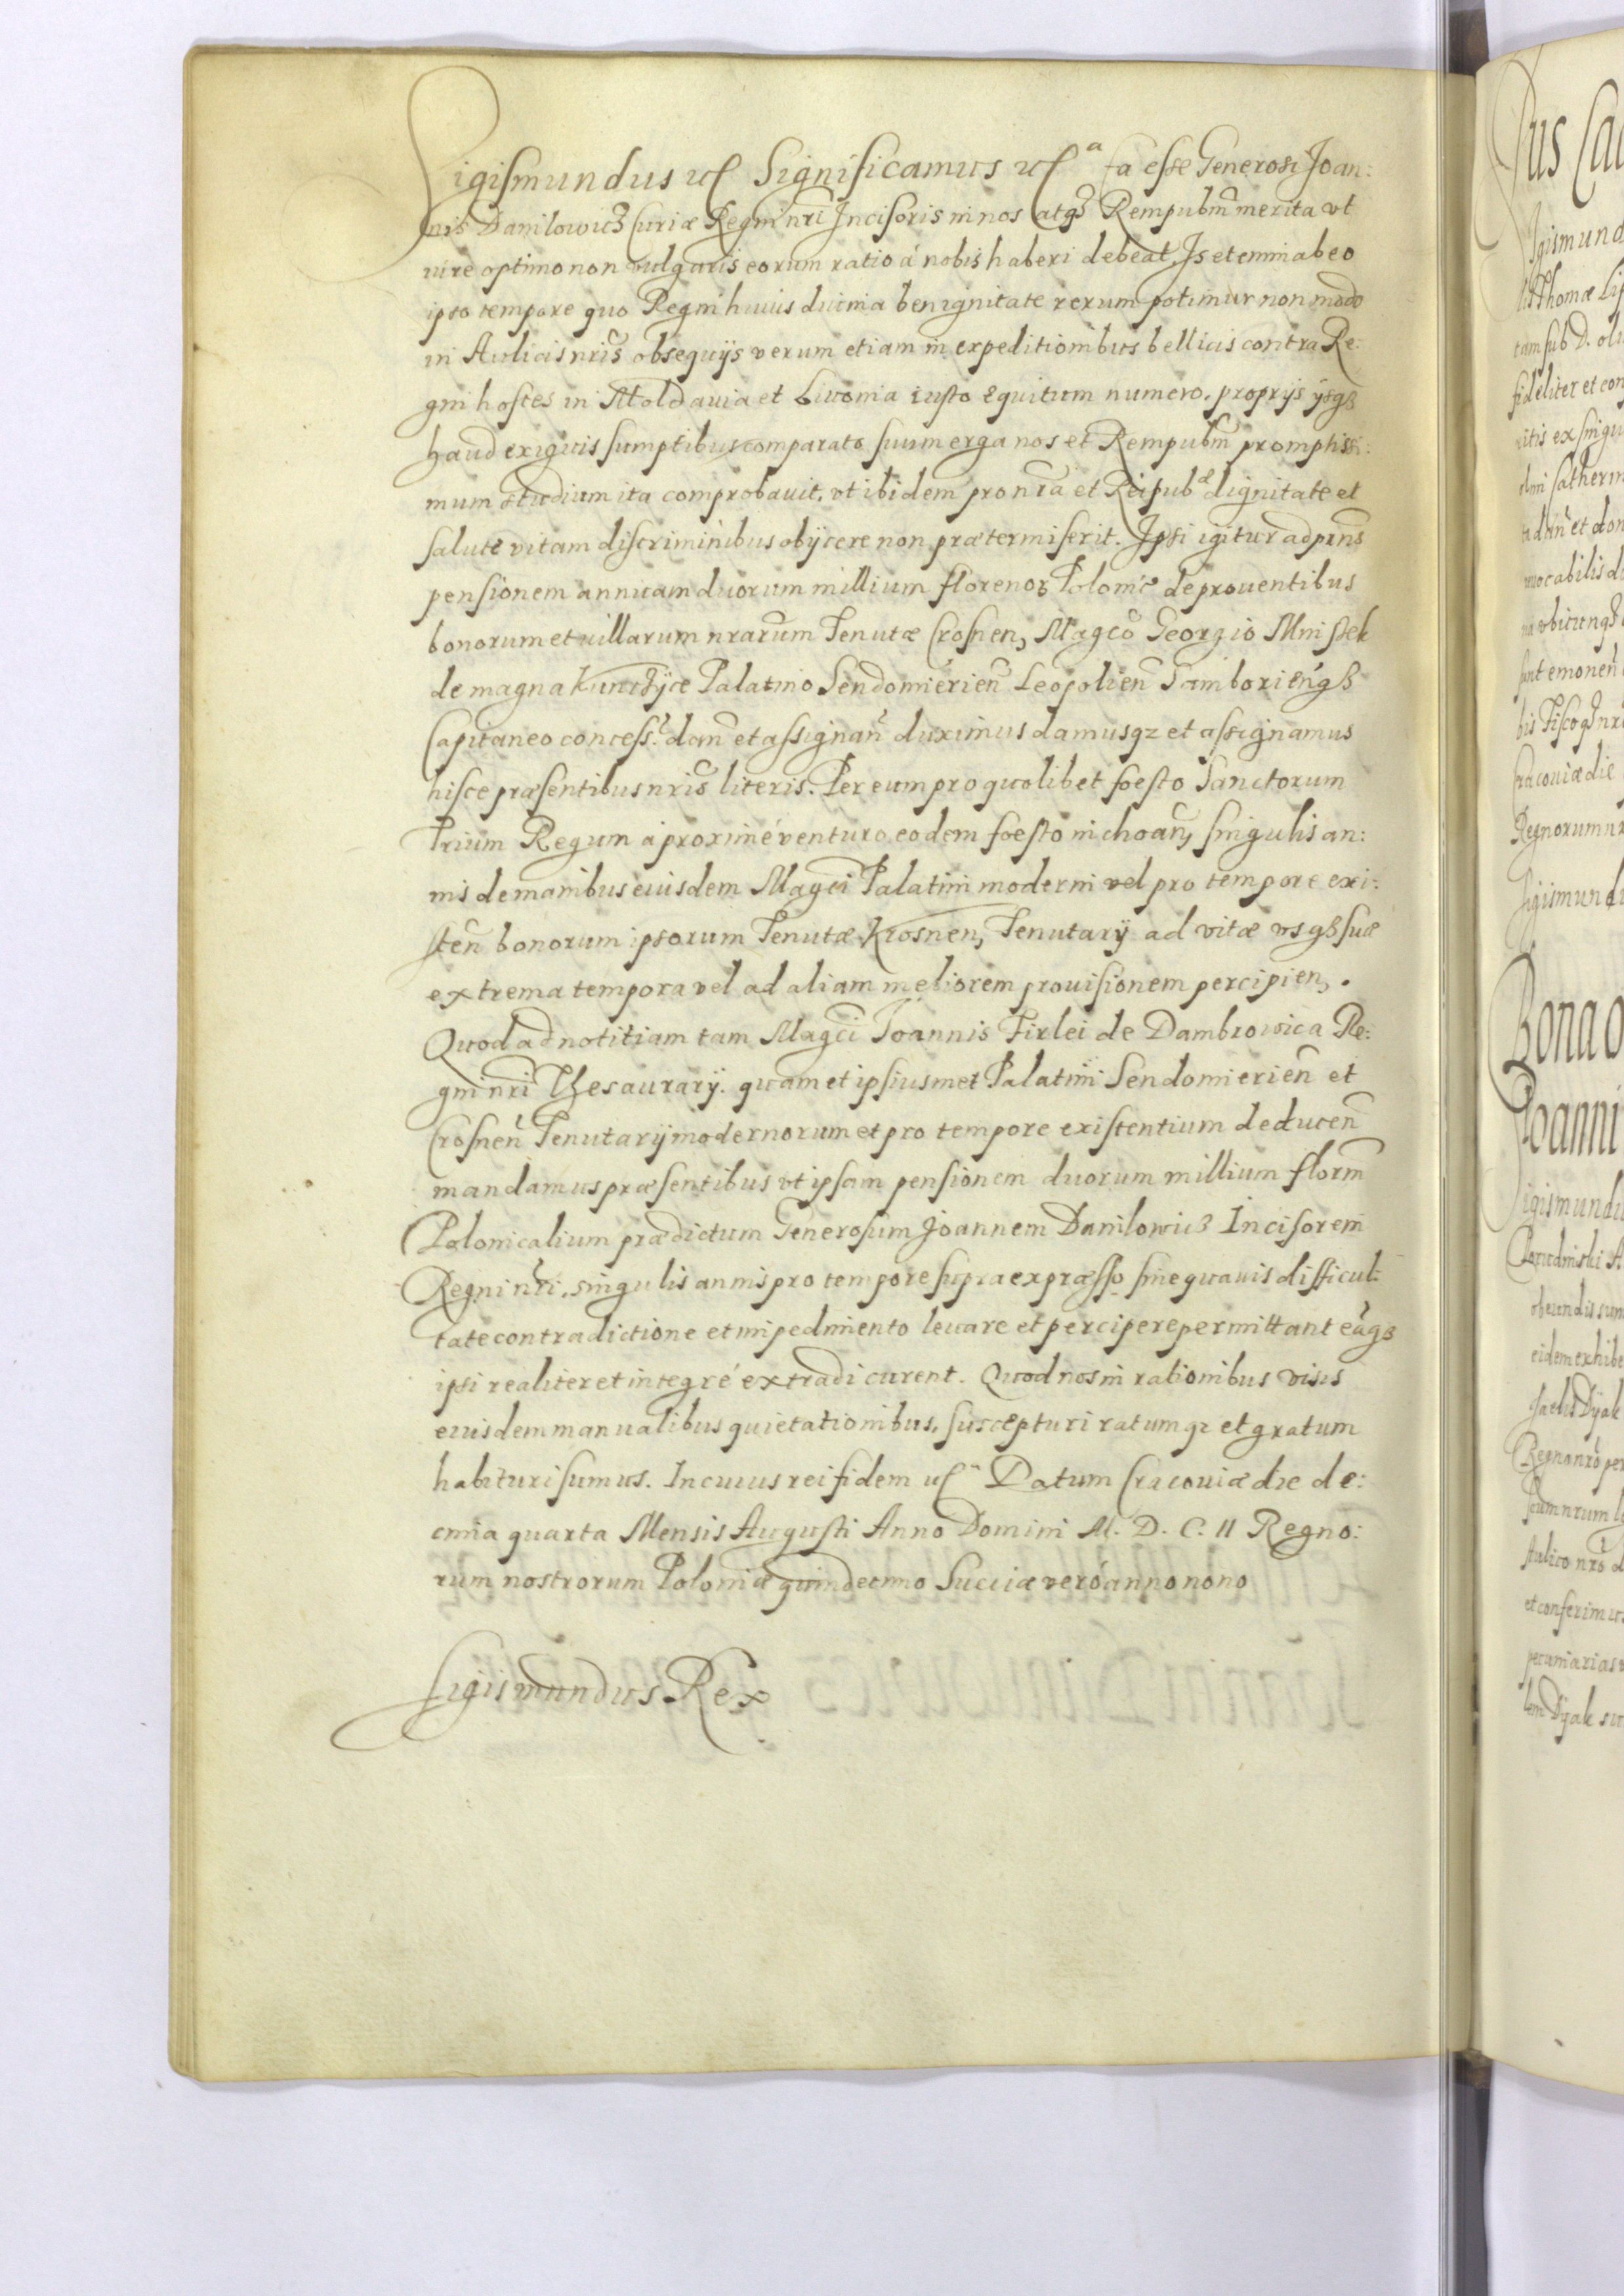 Sigismundus etc Significamus etc a Ea esse Generosi Joan:
nis Danilowicz Curiæ Regni nri Incisoris in nos atqз Rempubm merita vt
iure optimo non vulgaris eorum ratio á nobis haberi debeat. Is etenim ab eo
ipso tempore quo Regni huius diuina benignitate rerum potimur non modo
in Aulicis nris obsequijs verum etiam in expeditionibus bellicis contra Re:
gni hostes in Moldauia et Liuonia iusto equitum numero, proprijs ijsqз
haud exiguis sumptibus comparato suum erga nos et Rempubm promptissi:
mum studium ita comprobauit, vt ibidem pro nra et Reipubæ dignitate et
salute vitam discriminibus obijcere non prætermiserit. Ipsi igitur ad præns
pensionem annuam duorum millium florenor Polonic de prouentibus
bonorum et villarum nrarum Tenutæ Crosnen, Magco Georgio Mnisɀek
de magna Kunczyce Palatino Sendomirien Leopolien Samborienqз
Capitaneo concess. dan et assignan duximus damusqз et assignamus
hisce præsentibus nris literis. Per eum pro quolibet foesto Sanctorum
Trium Regum á proximé venturo eodem foesto inchoan, singulis an:
nis de manibus eiusdem Magci Palatini moderni vel pro tempore exi:
sten bonorum ipsorum Tenutæ Krosnen, Tenutarij ad vitæ vsqз suæ
extrema tempora vel ad aliam meliorem prouisionem percipien, .
Quod ad notitiam tam Magci Joannis Firlei de Dambrowica Re:
gni nri Thesaurarij. quam et ipsiusmet Palatini Sendomierien et
Crosnen Tenutarij modernorum et pro tempore existentium deducen
mandamus præsentibus vt ipsam pensionem duorum millium florm
Polonicalium prædictum Generosum Joannem Danilowicз Incisorem
Regni nri, singulis annis pro tempore supra expræsso sine quauis difficul:
tate contradictione et impedimento leuare et percipere permittant eamqз
ipsi realiter et integré extradi curent. Quod nos in rationibus visis
eiusdem manualibus quietationibus, suscepturi ratumqз et gratum
habituri sumus. In cuius rei fidem etc Datum Cracouiæ die de:
cima quarta Mensis Augusti Anno Domini M. D. C. II Regno:
rum nostrorum Poloniæ quindecimo Sueciæ veró anno nono
Sigismundus Rex